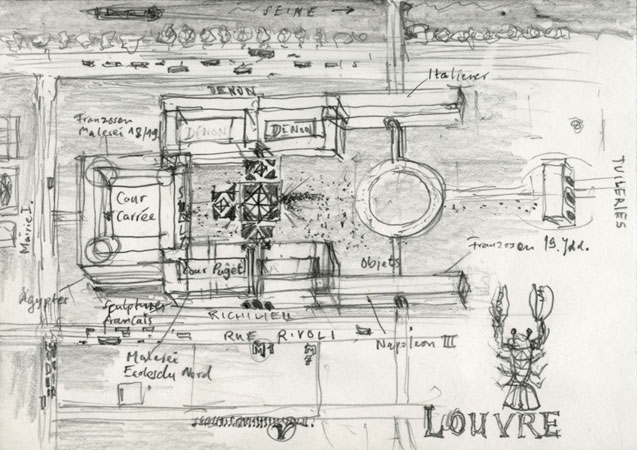 SEINE →
Italiener
DENON
Franzosen
Malerei 18/19
DENON
DENON
TUILERIES
Cour
Carrée
Mairie
Cour Puget
Objets
Franzosen 19. Jhd.
Ägypter
Sculptures
francais
RICHILIEU
Napoleon III
RUE RIVOLI
M1
M
Malerei
Ecoles du Nord
LOUVRE